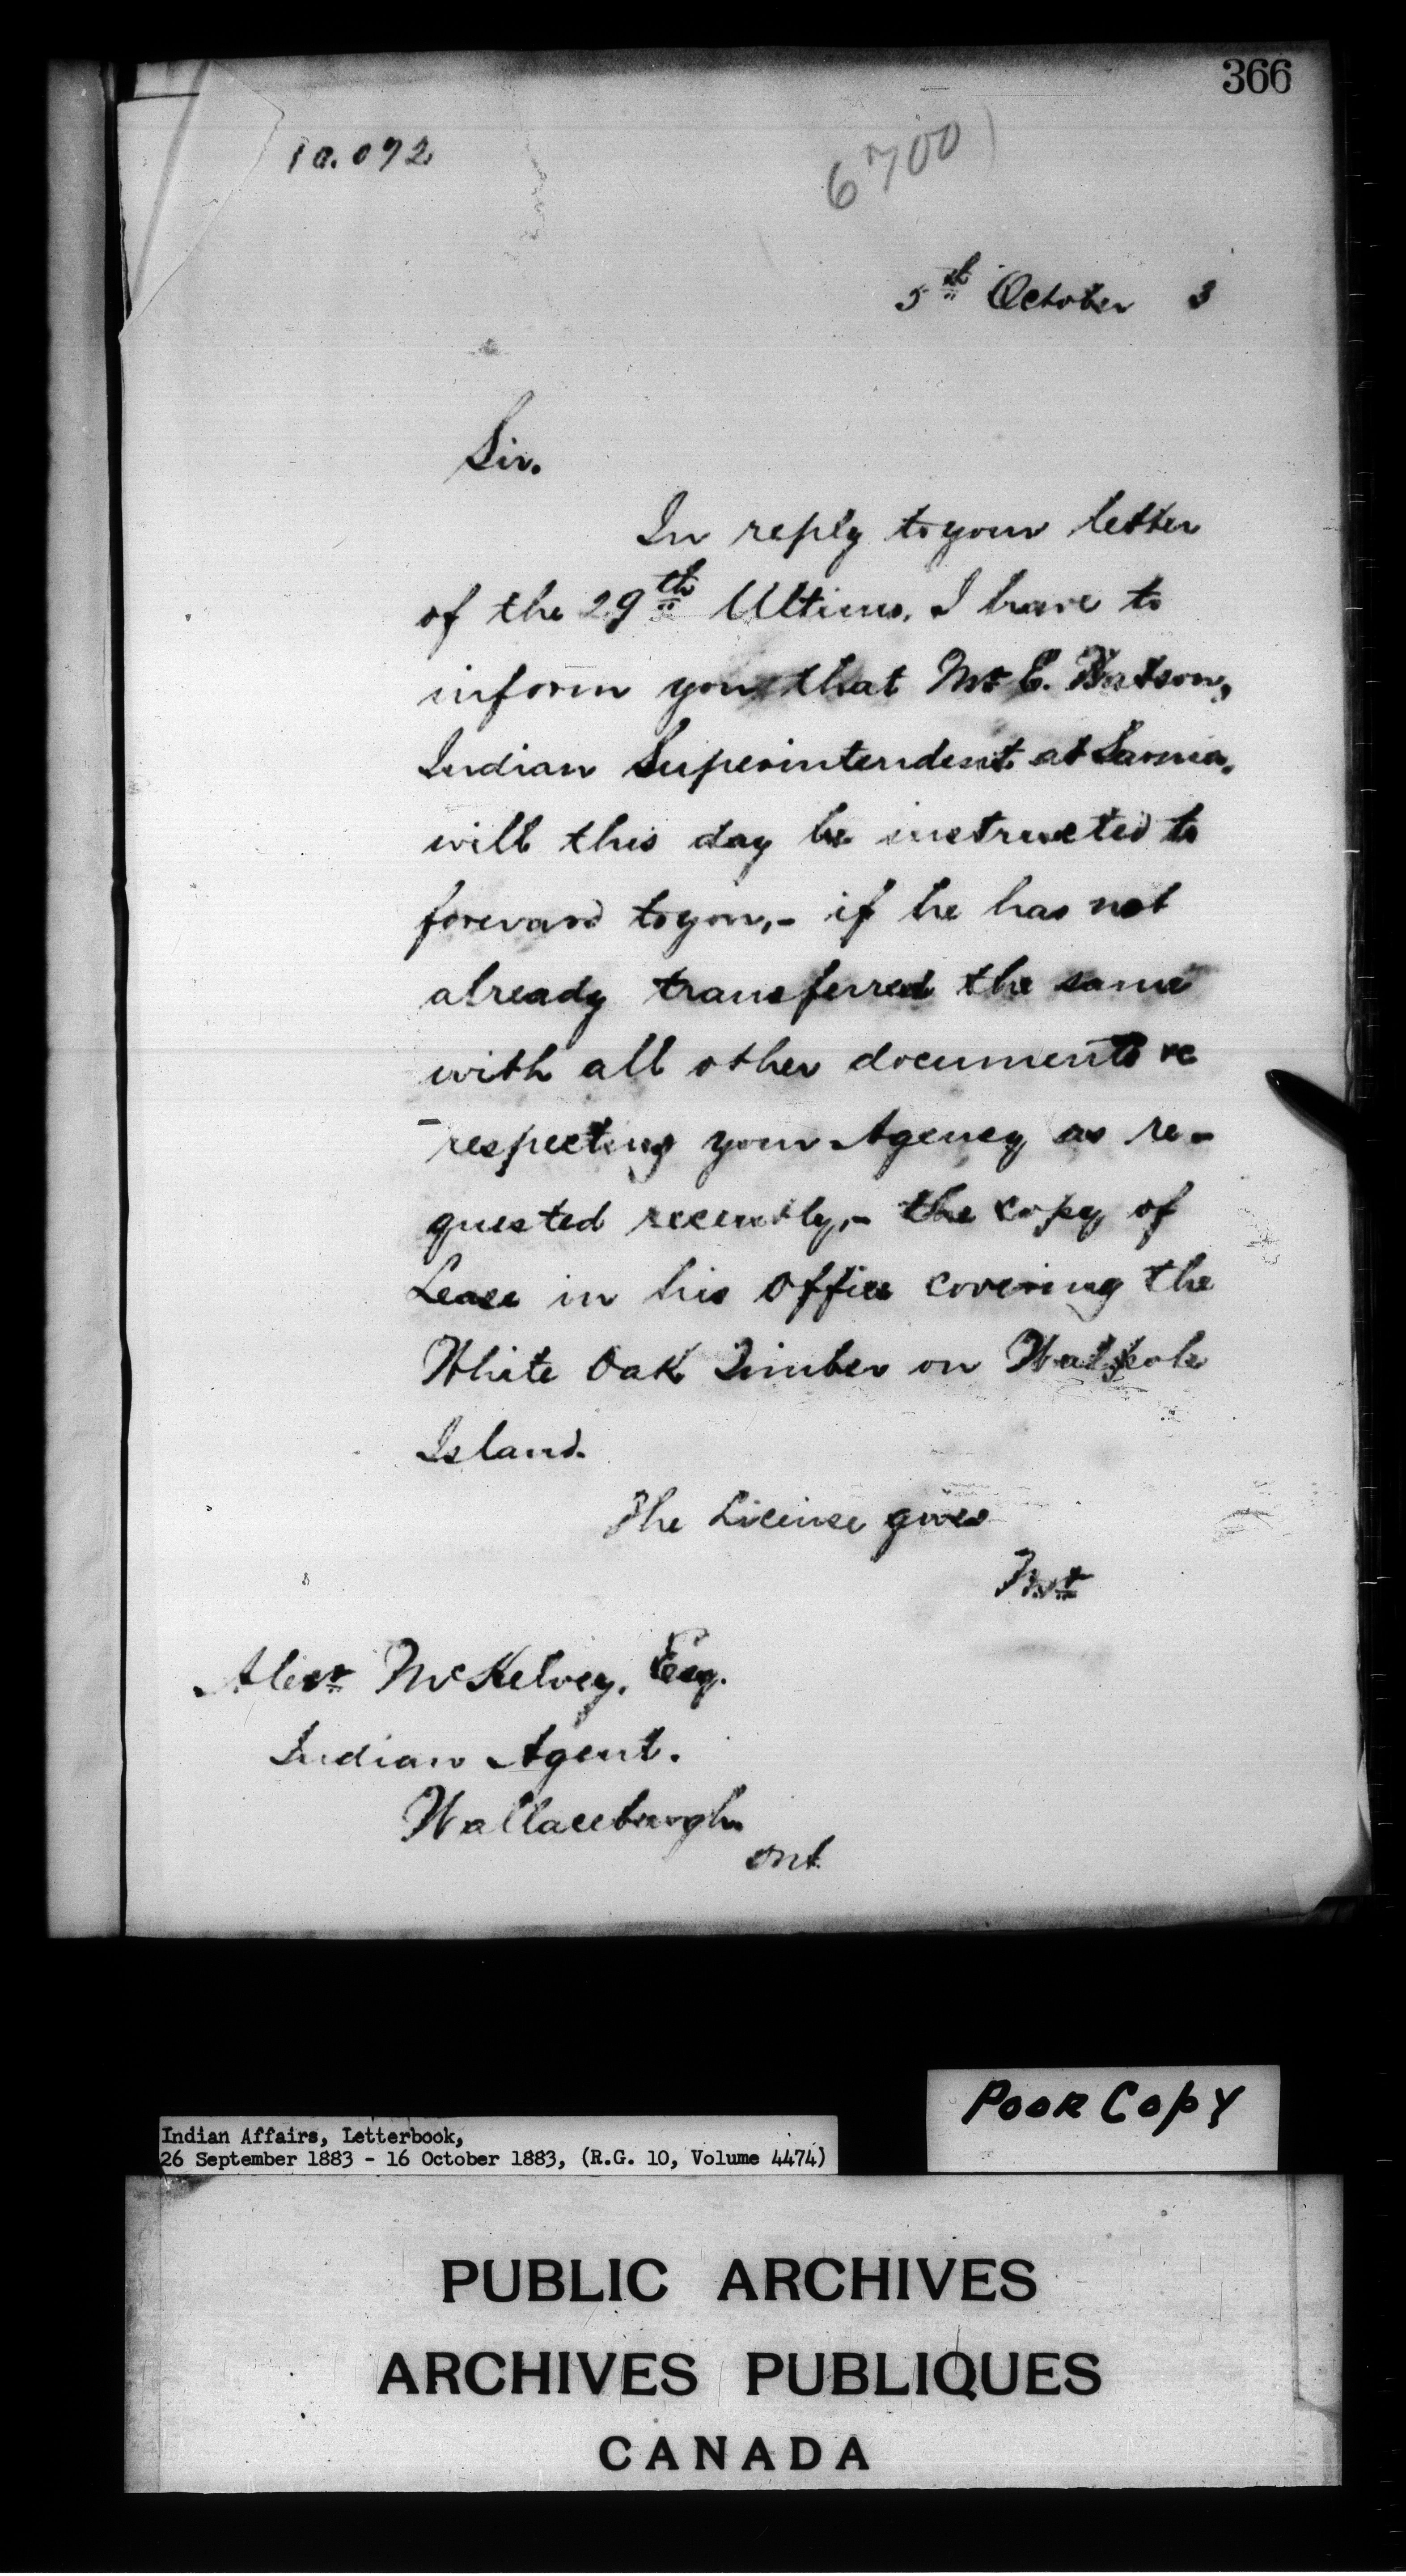 366
10.092
6700
5th October 3
Sir.
In reply to your letter
of the 29th Ultimo, I have to
inform you that Mr E. Watson,
Indian Superintendent at Sarnia,
will this day be instructed to
forward to you,- if he has not
already transferred the same
with all other documents re
respecting your Agency as re-
quested recently,- the copy of
Lease in his Office covering the
White Oak Timber on Walpole
Island.
The License gives
Mr
Alexr McKelvey, Esq.
Indian Agent.
Wallaceburgh
Ont.
Poor Copy
Indian Affairs, Letterbook,
26 September 1883 - 16 October 1883, (R.G. 10, Volume 4474)
PUBLIC ARCHIVES
ARCHIVES PUBLIQUES
CANADA